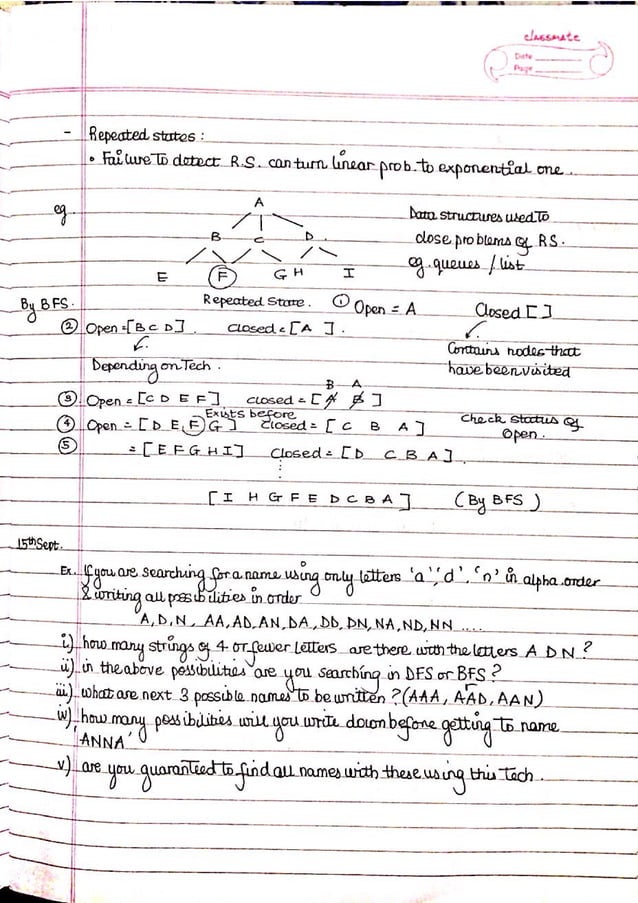 classmate
Date
Page
- Repeated states :
• Failure To detect R.S. can turn linear prob. to exponential one.
eg.
A
B C D.
E F G H I
Repeated State.
Data structures used To
close problems of RS.
eg. queues / list
By BFS.
① Open = A Closed [ ]
Contains nodes that
have been visited
② Open = [B C D]. Closed = [A ].
Depending on Tech.
B A
③ Open = [C D E F] Closed = [A B ]
Exists before
④ Open = [D E, F G] Closed = [ C B A ]
check status of
Open.
⑤ = [E F G H I] Closed = [D C B A].
[ I H G F E D C B A ] (By BFS)
15th Sept.
Ex. If you are searching for a name using only letters 'a', 'd', 'n' in alpha. order
& writing all possibilities in order
A, D, N, AA, AD, AN, DA, DD, DN, NA, ND, NN .....
i) how many strings of 4 or fewer letters are there with the letters A D N ?
ii) in the above possibilities are you searching in DFS or BFS ?
iii) what are next 3 possible names to be written ? (AAA, AAD, AAN)
iv) how many possibilities will you write down before getting to name
'ANNA'
v) are you guaranteed to find all names with these using this Tech.